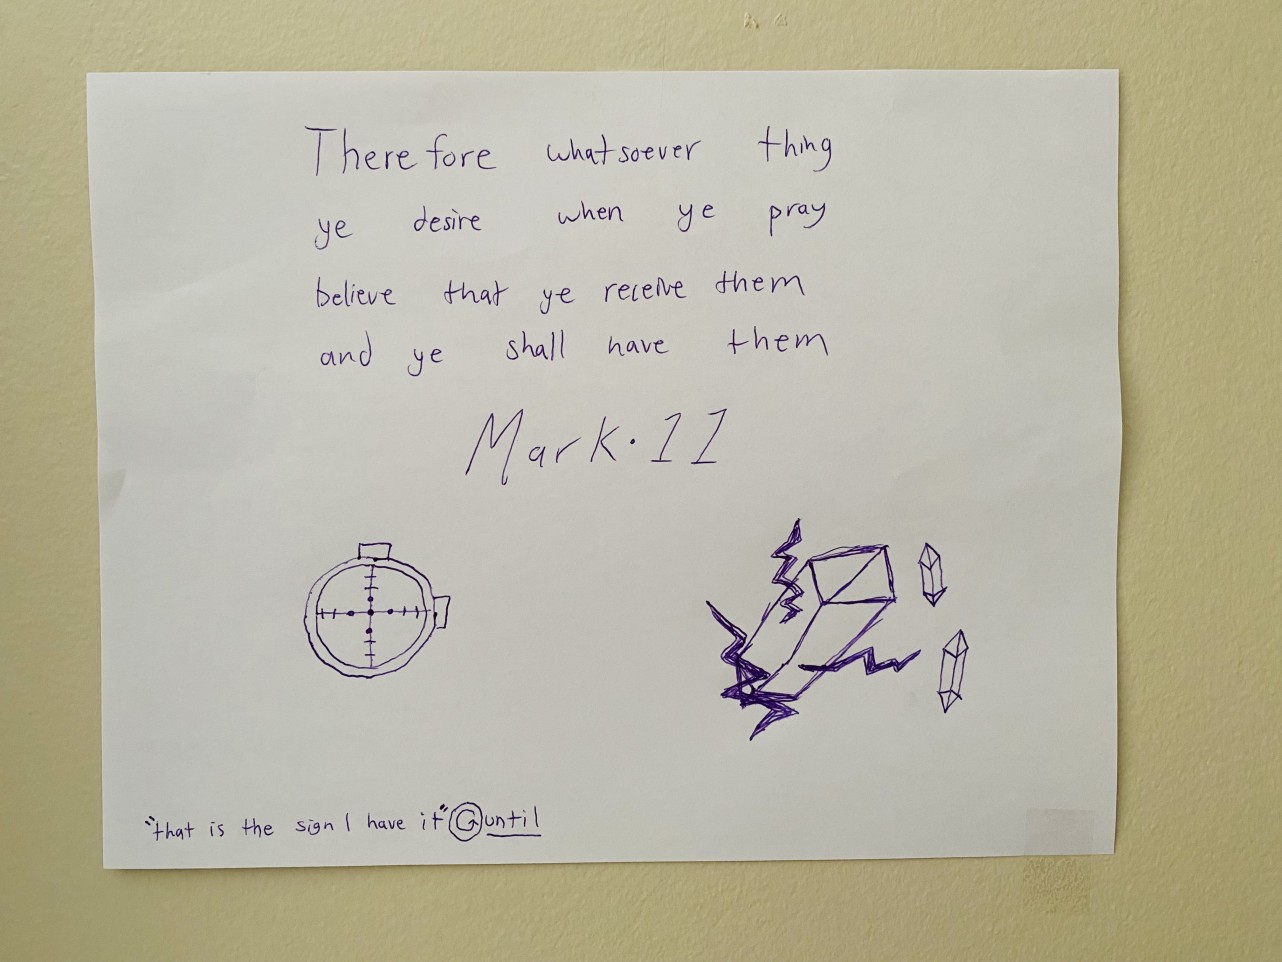 Therefore whatsoever thing
ye desire when ye pray
believe that ye receive them
and ye shall have them
Mark·11
"that is the sign I have it" G until